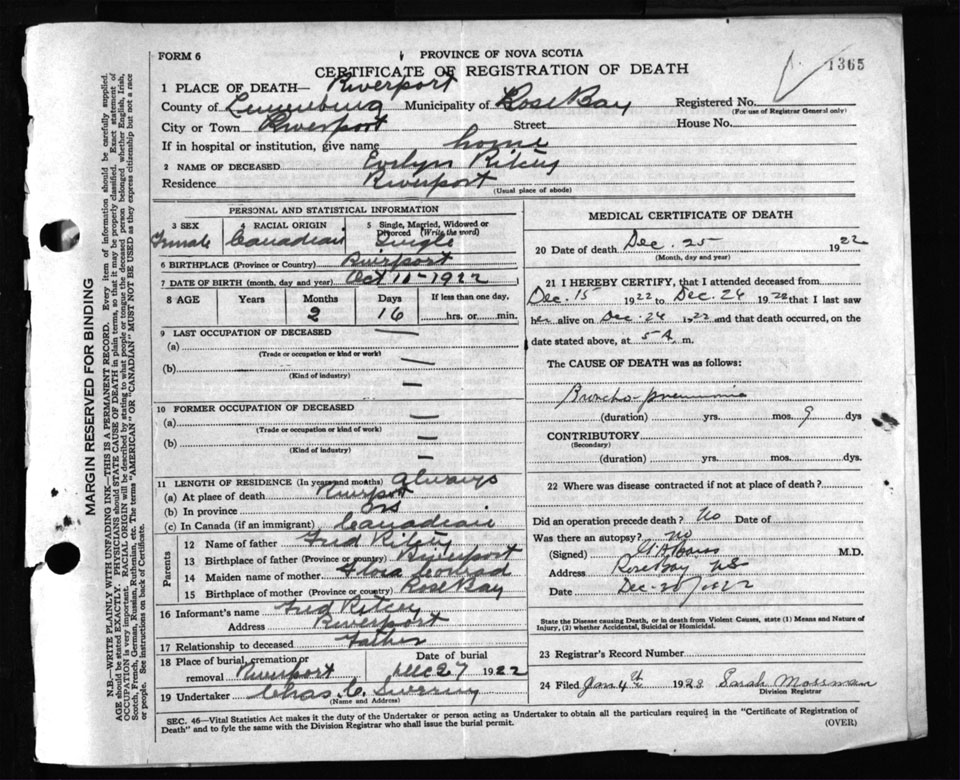 FORM 6
PROVINCE OF NOVA SCOTIA
CERTIFICATE OF REGISTRATION OF DEATH
1365
1 PLACE OF DEATH— Riverport
County of Lunenburg Municipality of Rose Bay Registered No.
(For use of Registrar General only)
City or Town Riverport Street House No.
If in hospital or institution, give name home
2 NAME OF DECEASED Evelyn Ritcey
Residence Riverport
(Usual place of abode)
PERSONAL AND STATISTICAL INFORMATION
3 SEX 4 RACIAL ORIGIN 5 Single, Married, Widowed or Divorced (Write the word)
Female Canadian Single
6 BIRTHPLACE (Province or Country) Riverport
7 DATE OF BIRTH (month, day and year) Oct 10-1922
8 AGE Years Months Days If less than one day,
2 16 hrs. or min.
9 LAST OCCUPATION OF DECEASED
(a) —
(Trade or occupation or kind or work)
(b) —
(Kind of industry)
10 FORMER OCCUPATION OF DECEASED
(a) —
(Trade or occupation or kind of work)
(b) —
(Kind of industry)
11 LENGTH OF RESIDENCE (In years and months) Always
(a) At place of death Riverport
(b) In province NS
(c) In Canada (if an immigrant) Canadian
Parents
12 Name of father Fred Ritcey
13 Birthplace of father (Province or country) Riverport
14 Maiden name of mother
15 Birthplace of mother (Province or country) Rose Bay
16 Informant's name Fred Ritcey
Address Riverport
17 Relationship to deceased Father
18 Place of burial, cremation or removal Riverport Date of burial Dec 27 1922
19 Undertaker Chas. C.
(Name and Address)
MEDICAL CERTIFICATE OF DEATH
20 Date of death Dec. 25 1922
(Month, day and year)
21 I HEREBY CERTIFY, that I attended deceased from
Dec. 15 1922 to Dec. 24 1922 that I last saw
her alive on Dec. 24 1922 and that death occurred, on the
date stated above, at 5 A. m.
The CAUSE OF DEATH was as follows:
Broncho-pneumonia
(duration) yrs. mos. 9 dys
CONTRIBUTORY
(Secondary)
(duration) yrs. mos. dys.
22 Where was disease contracted if not at place of death?
Did an operation precede death? No Date of
Was there an autopsy? No
(Signed) M.D.
Address Rose Bay NS
Date
State the Disease causing Death, or in death from Violent Causes, state (1) Means and Nature of
Injury, (2) whether Accidental, Suicidal or Homicidal.
23 Registrar's Record Number
24 Filed Jan 4th 1923 Sarah Mossman
Division Registrar
SEC. 46—Vital Statistics Act makes it the duty of the Undertaker or person acting as Undertaker to obtain all the particulars required in the "Certificate of Registration of
Death" and to fyle the same with the Division Registrar who shall issue the burial permit. (OVER)
MARGIN RESERVED FOR BINDING
N.B.—WRITE PLAINLY WITH UNFADING INK—THIS IS A PERMANENT RECORD. Every item of information should be carefully supplied.
AGE should be stated EXACTLY. PHYSICIANS should STATE CAUSE OF DEATH in plain terms, so that it may be properly classified. Exact statement of
OCCUPATION is very important. RACIAL ORIGIN will be described by stating to what people or tongue the deceased person belonged whether English, Irish,
Scotch, French, German, Russian, Ruthenian, etc. The terms "AMERICAN" OR "CANADIAN" MUST NOT BE USED as they express citizenship but not a race
or people. See instructions on back of Certificate.